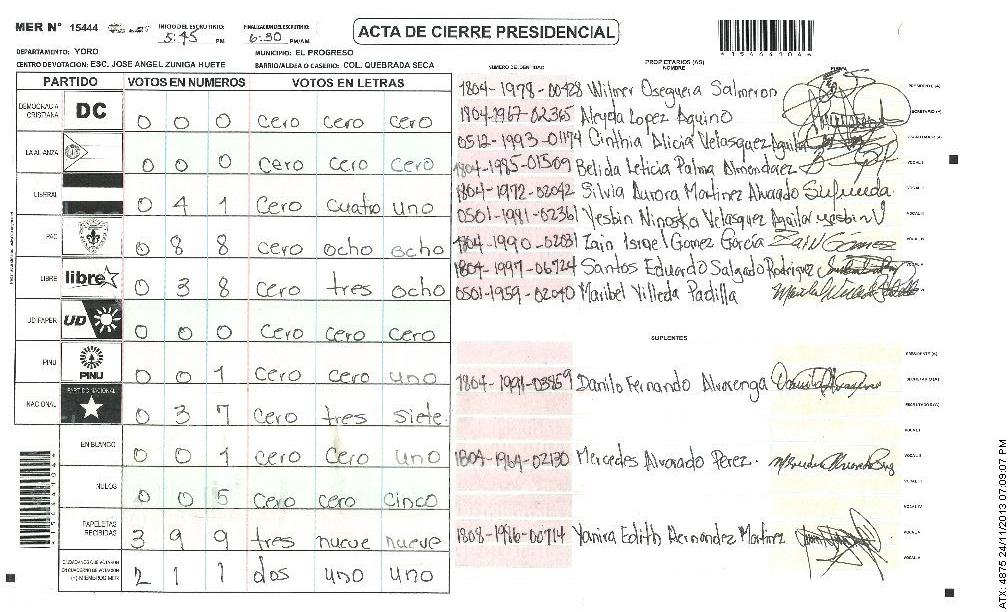 MER N° 15444 INICIO DEL ESCRUTINIO: 5:45 PM FINALIZACION DEL ESCRUTINIO: 6:30 PM/AM
ACTA DE CIERRE PRESIDENCIAL
DEPARTAMENTO: YORO MUNICIPIO: EL PROGRESO
CENTRO DE VOTACION: ESC. JOSE ANGEL ZUNIGA HUETE BARRIO/ALDEA O CASERIO: COL. QUEBRADA SECA
PARTIDO VOTOS EN NUMEROS VOTOS EN LETRAS
DEMOCRACIA CRISTIANA DC 0 0 0 cero cero cero
LA ALIANZA 0 0 0 cero cero cero
LIBERAL 0 4 1 cero cuatro uno
PAC 0 8 8 cero ocho ocho
LIBRE libre 0 3 8 cero tres ocho
UD-FAPER UD 0 0 0 cero cero cero
PINU PINU 0 0 1 cero cero uno
NACIONAL PARTIDO NACIONAL 0 3 7 cero tres siete.
EN BLANCO 0 0 1 cero cero uno
NULOS 0 0 5 cero cero cinco
PAPELETAS RECIBIDAS 3 9 9 tres nueve nueve
CIUDADANOS QUE VOTARON EN CUADERNO DE VOTACION (+) MIEMBROS MER 2 1 1 dos uno uno
NUMERO DE IDENTIDAD PROPIETARIOS (AS) NOMBRE FIRMA
1804-1978-00428 Wilmer Oseguera Salmeron PRESIDENTE (A)
1804-1967-02365 Aleyda Lopez Aquino SECRETARIO (A)
0512-1993-01174 Cinthia Alicia Velasquez Aguilar ESCRUTADOR (A)
1804-1985-01509 Belida Leticia Palma Almendarez VOCAL I
1804-1972-02042 Silvia Aurora Martinez Alvarado VOCAL II
0501-1981-02361 Yesbin Ninoska Velasquez Aguilar yesbin V VOCAL III
1804-1990-02031 Zain Israel Gomez Garcia Zain Gómez VOCAL IV
1804-1997-06724 Santos Eduardo Salgado Rodriguez VOCAL V
0501-1959-02040 Maribel Villeda Padilla VOCAL VI
SUPLENTES
PRESIDENTE (A)
1804-1991-03859 Danilo Fernando Alvarenga SECRETARIO (A)
ESCRUTADOR (A)
VOCAL I
1804-1964-02130 Mercedes Alvarado Perez. VOCAL II
VOCAL III
VOCAL IV
1808-1986-00714 Yanira Edith Hernandez Martinez VOCAL V
VOCAL VI
ATX: 4875 24/11/2013 07:09:07 PM